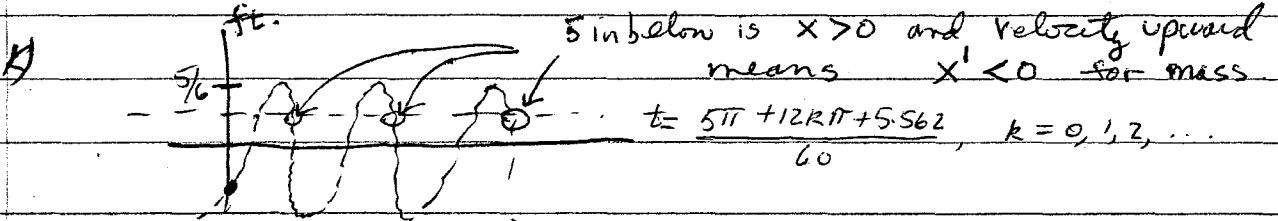 k)
ft.
5 in below is x > 0 and velocity upward
5/6
means x' < 0 for mass
t = (5π + 12kπ + 5.562)/60, k = 0, 1, 2, ...